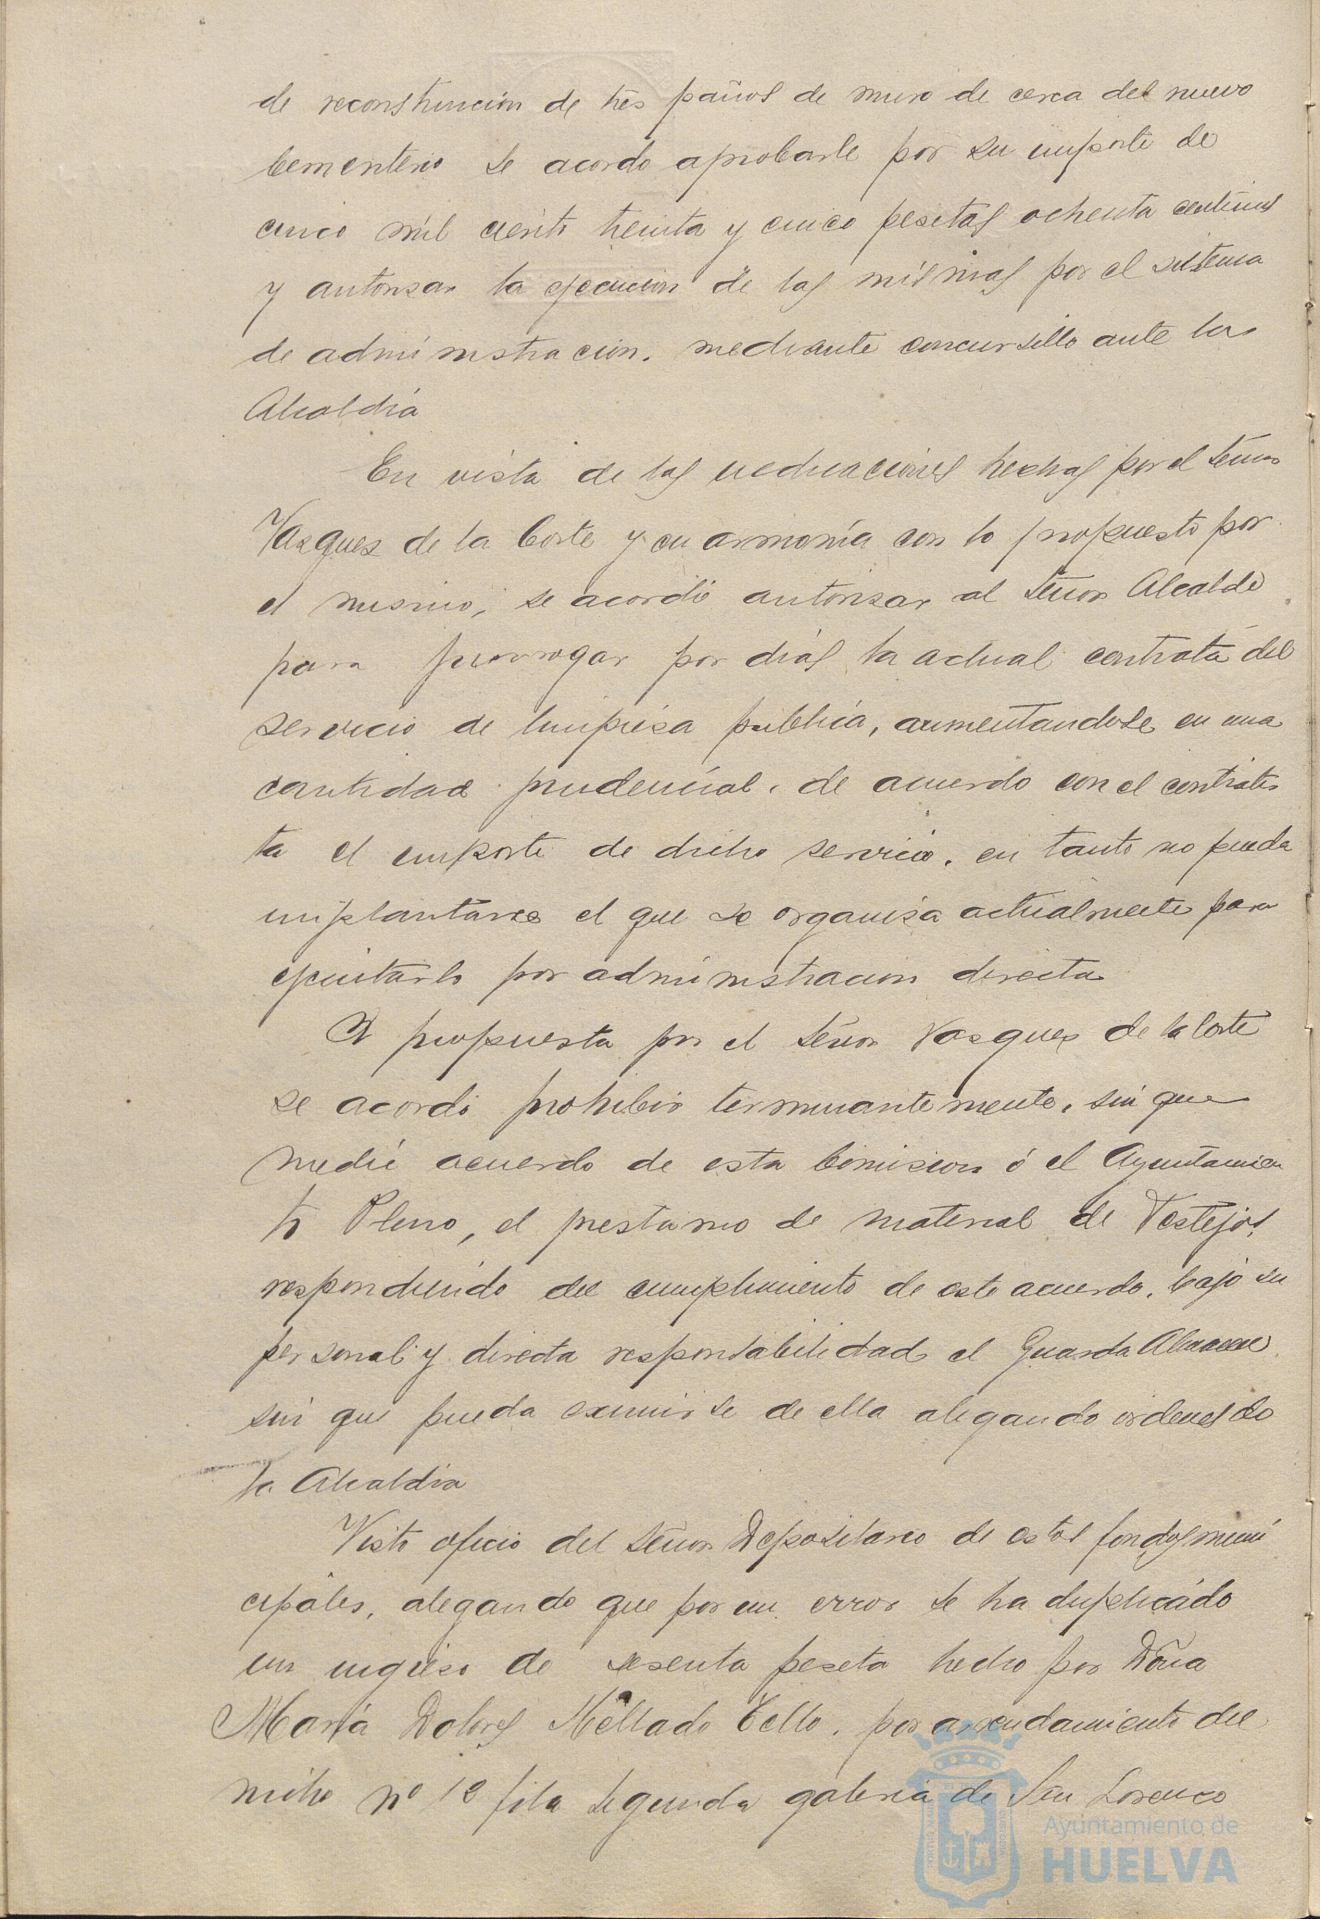 de reconstrucción de tres paños de muro de cerca del nuevo
Cementerio se acordo aprobarle por su importe de
cinco mil ciento treinta y cinco pesetas ochenta centimos
y autorizar la ejecución de las mismas por el sistema
de administracion, mediante concursillo ante la
Alcaldia
En vista de las indicaciones hechas por el Señor
Vasquez de la Corte y en armonía con lo propuesto por
el mismo, se acordó autorizar al Señor Alcalde
para prorrogar por dias la actual contrata del
servicio de limpieza publica, aumentandose en una
cantidad prudencial, de acuerdo con el contratis
ta el importe de dicho servicio, en tanto no pueda
implantarse el que se organiza actualmente para
ejecutarlo por administracion directa
A propuesta por el Señor Vasquez de la Corte
se acordó prohibir terminantemente, sin que
medie acuerdo de esta Comision ó el Ayuntamien
to Pleno, el prestamo de material de Festejos,
respondiendo del cumplimiento de este acuerdo, bajo su
personal y directa responsabilidad el Guarda Almacen
sin que pueda eximirse de ella alegando ordenes de
la Alcaldia
Visto oficio del Señor Depositario de estos fondos muni
cipales, alegando que por un error se ha duplicado
un ingreso de sesenta peseta hecho por Doña
María Dolores Mellado Tello, por arrendamiento del
nicho nº 12 fila segunda galeria de San Lorenzo
Ayuntamiento de
HUELVA